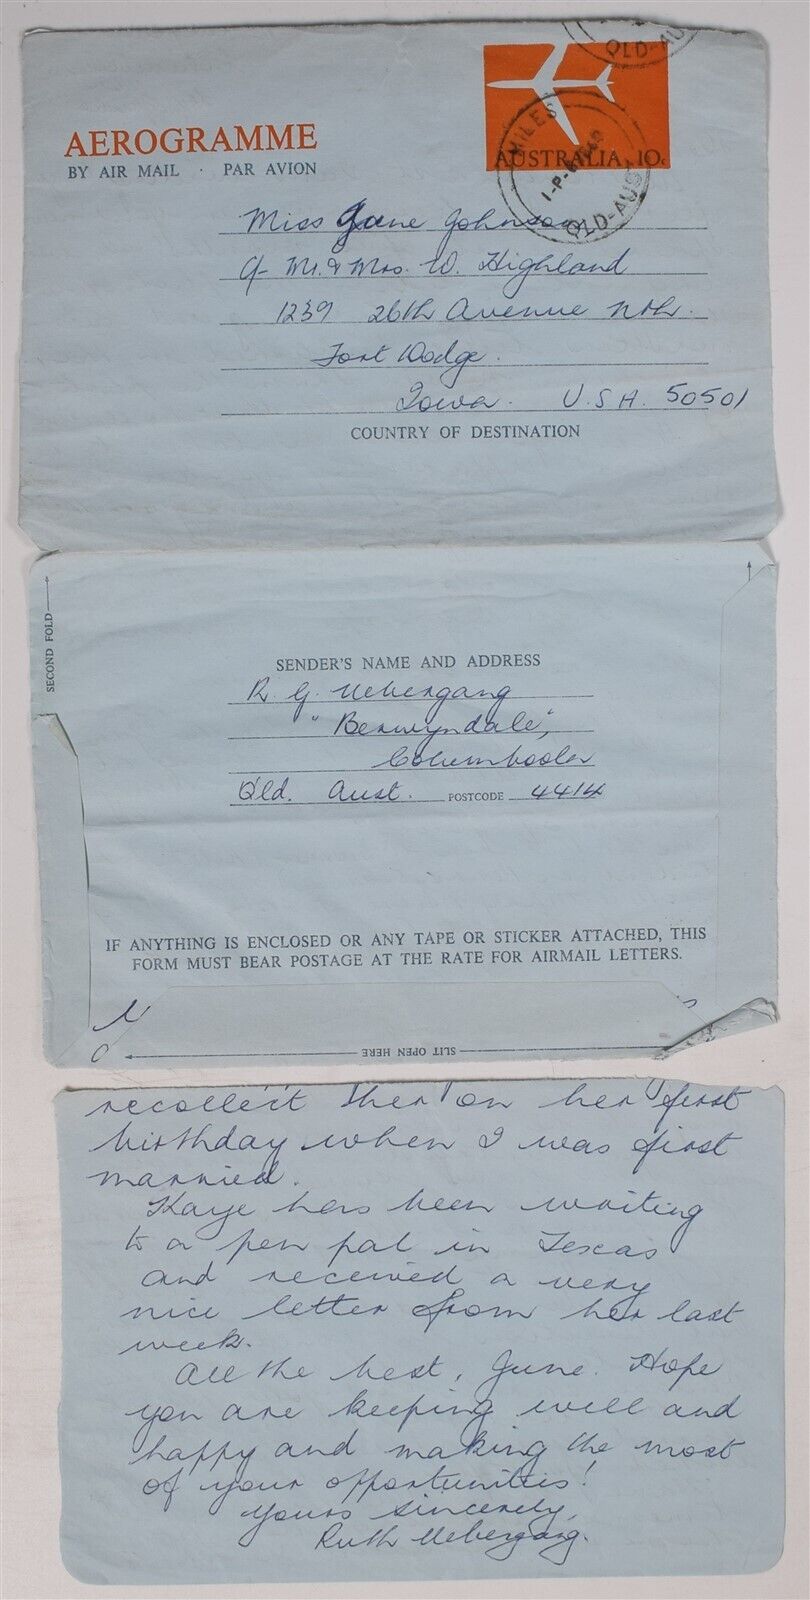 QLD-AU
AEROGRAMME
BY AIR MAIL · PAR AVION
AUSTRALIA 10c
MILES
QLD-AUST
Miss June Johnson
C/- Mr. & Mrs. W. Highland
1239 26th Avenue Nth.
Fort Dodge.
Iowa. U.S.A. 50501
COUNTRY OF DESTINATION
SECOND FOLD
SENDER'S NAME AND ADDRESS
R. G. Uebergang
"Berwyndale",
Columboola
Qld. Aust. POSTCODE 4414
IF ANYTHING IS ENCLOSED OR ANY TAPE OR STICKER ATTACHED, THIS
FORM MUST BEAR POSTAGE AT THE RATE FOR AIRMAIL LETTERS.
SLIT OPEN HERE
recollect her on her first
birthday when I was first
married.
Kaye has been writing
to a pen pal in Texas
and received a very
nice letter from her last
week.
All the best, June. Hope
you are keeping well and
happy and making the most
of your opportunities!
Yours sincerely,
Ruth Uebergang.